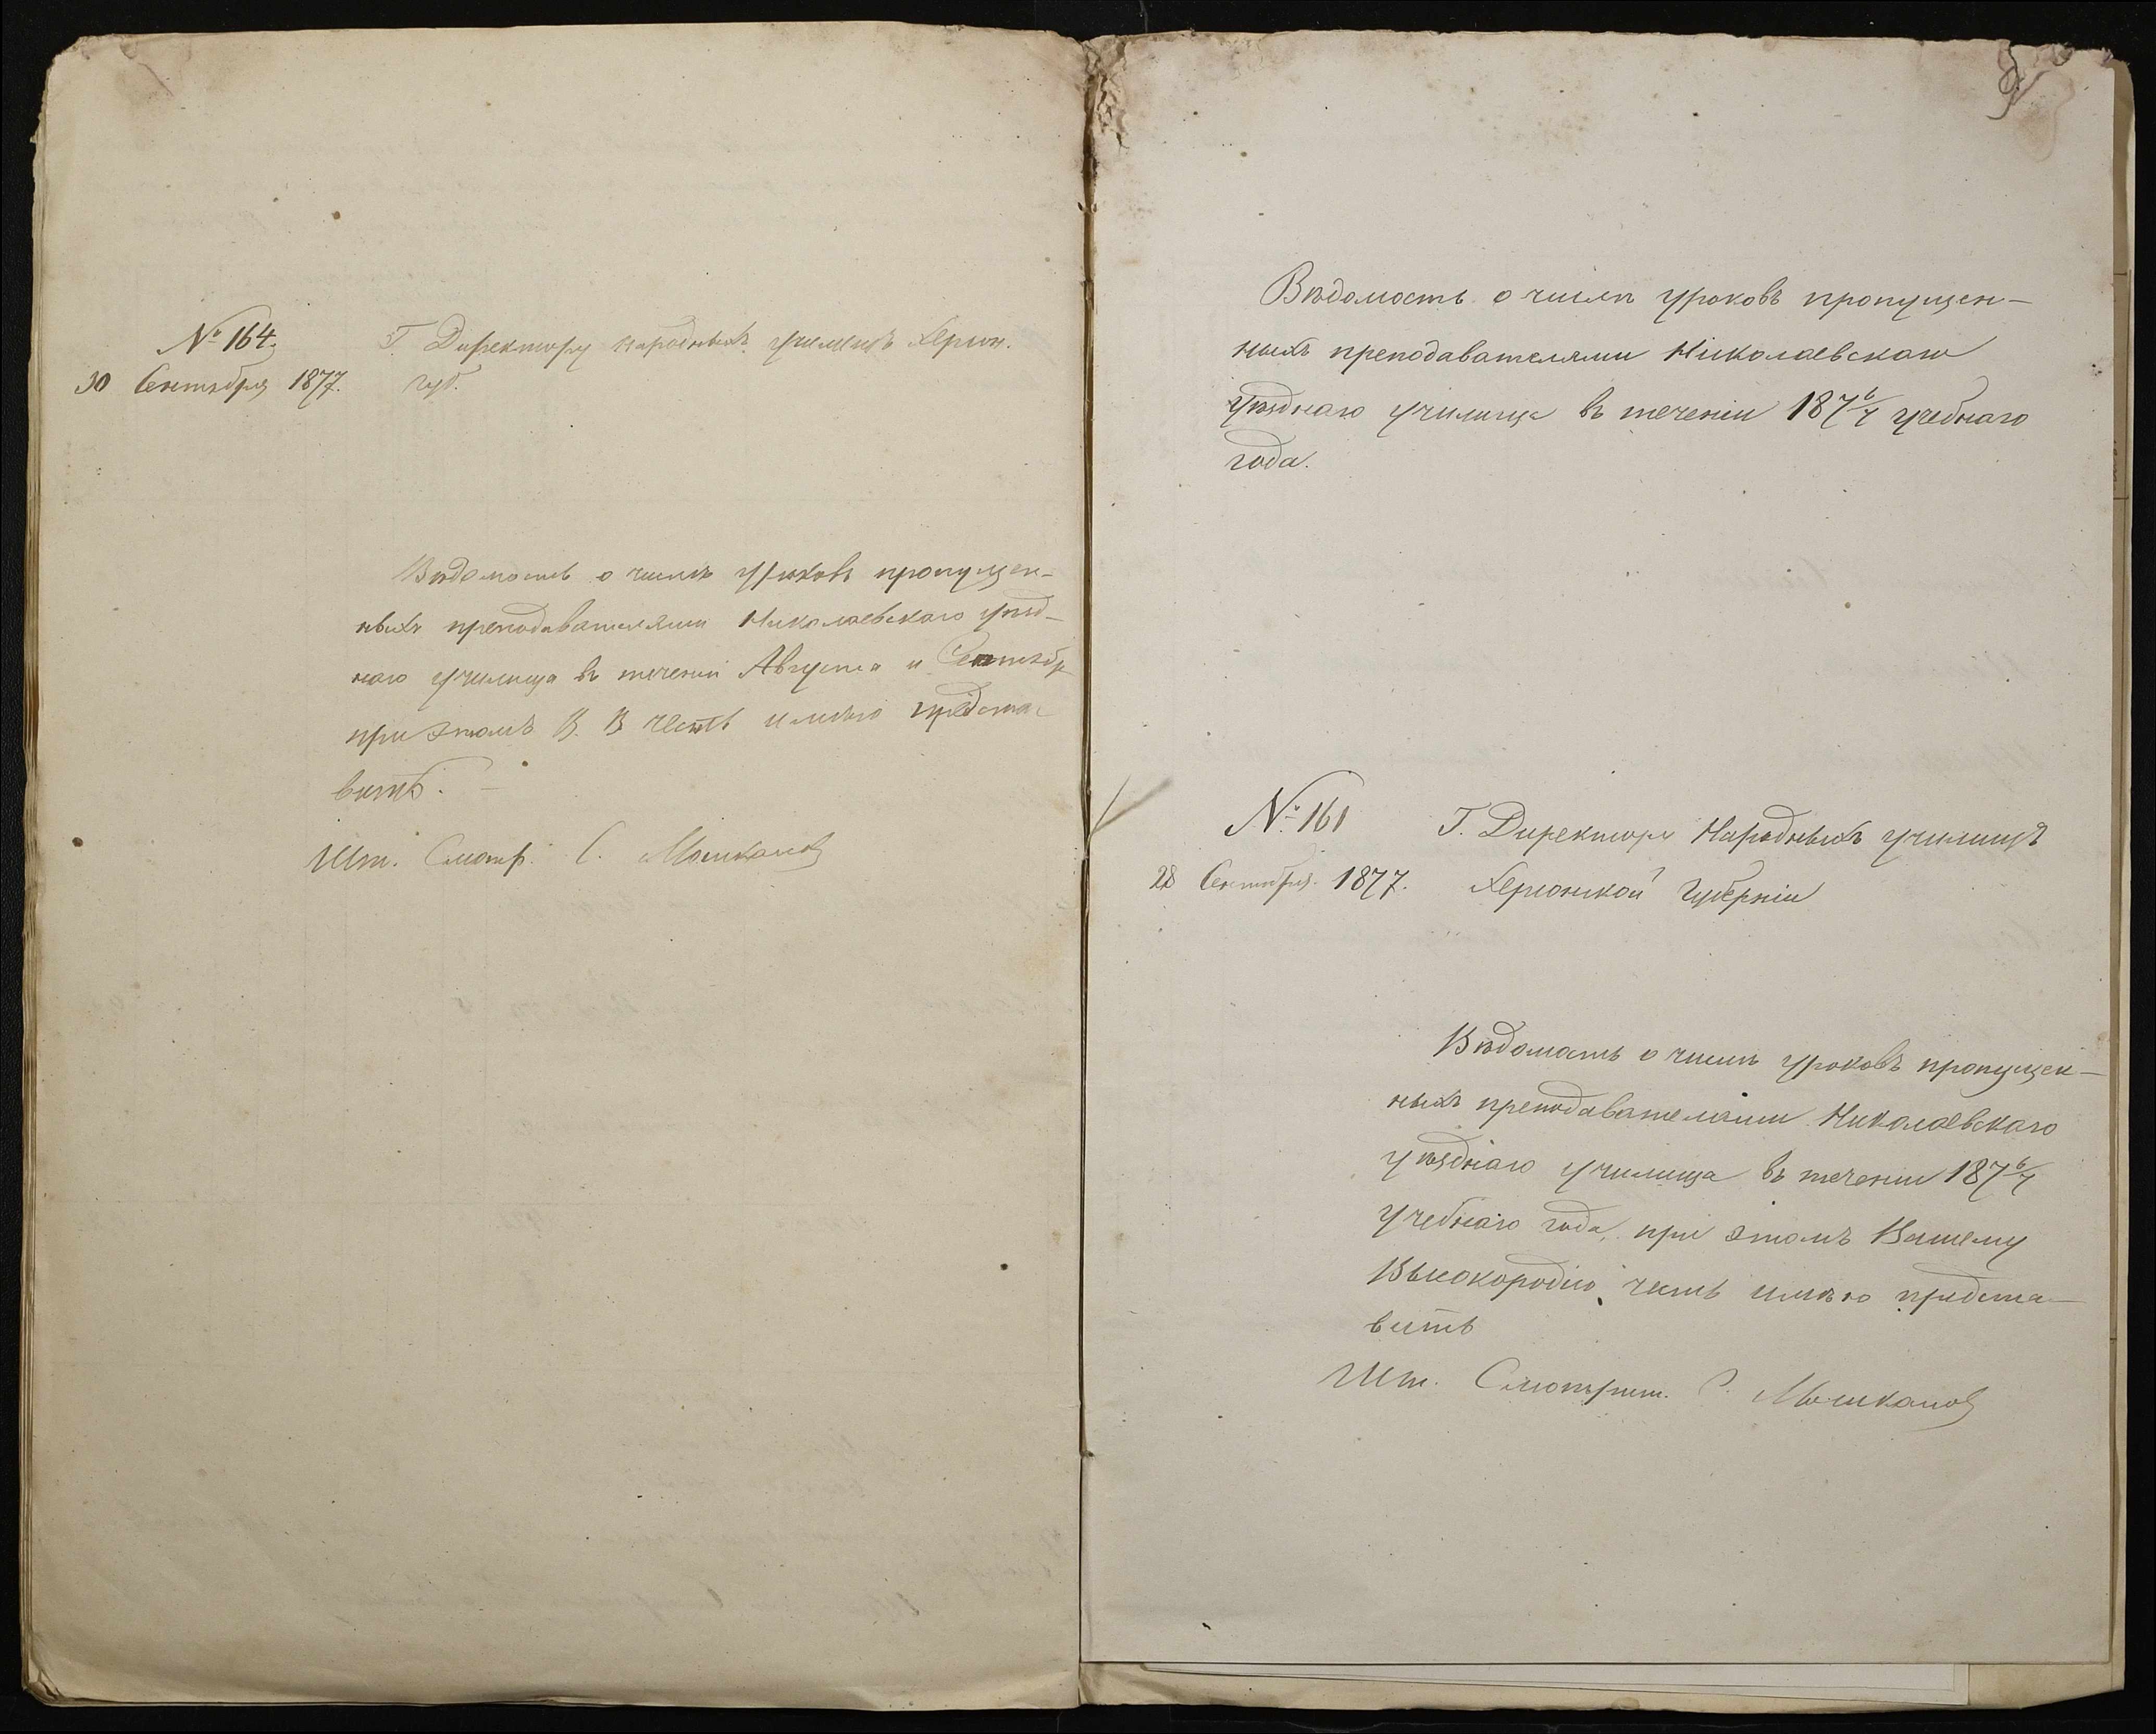 № 164.
30 Сентября 1877.
Г. Директору народныхъ училищъ Херсон.
губ.
Вѣдомость о числѣ уроковъ пропущен-
ныхъ преподавателями Николаевскаго уѣзд-
наго училища въ теченіи Августа и Сентябр
при этомъ В. В. честь имѣю предста-
вить. —
Шт. Смотр. С.
Вѣдомость о числѣ уроковъ пропущен-
ныхъ преподавателями Николаевскаго
уѣзднаго училища въ теченіи 187 6/7 учебнаго
года.
№ 161
28 Сентября. 1877.
Г. Директору Народныхъ училищъ
Херсонской Губерніи
Вѣдомость о числѣ уроковъ пропущен-
ныхъ преподавателями Николаевскаго
уѣзднаго училища въ теченіи 187 6/7
учебнаго года, при этомъ Вашему
Высокородію, честь имѣю предста-
вить
Шт. Смотрит. С.